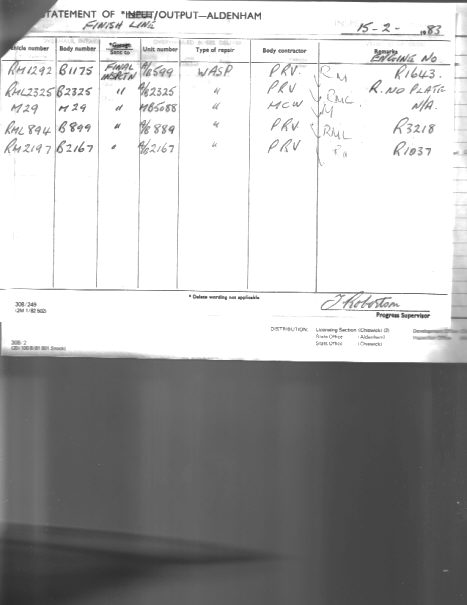 STATEMENT OF *INPUT/OUTPUT—ALDENHAM
FINISH LINE
15-2-1983
Vehicle number Body number *Garage Sent to Unit number Type of repair Body contractor Remarks
ENGINE NO.
RM1292 B1175 FINAL INSPCTN A/B599 WASP PRV. RM R1643.
RML2325 B2325 " A/B2325 " PRV RML R. NO PLATE
M29 M29 " MB5088 " MCW M N/A.
RML894 B899 " A/B889 " PRV RML R3218
RM2197 B2167 " A/B2167 " PRV R1037
* Delete wording not applicable
308/249
(2M 1/82 502)
J Robertson
Progress Supervisor
DISTRIBUTION: Licensing Section (Chiswick) (2)
State Office (Aldenham)
State Office (Chiswick)
308/2